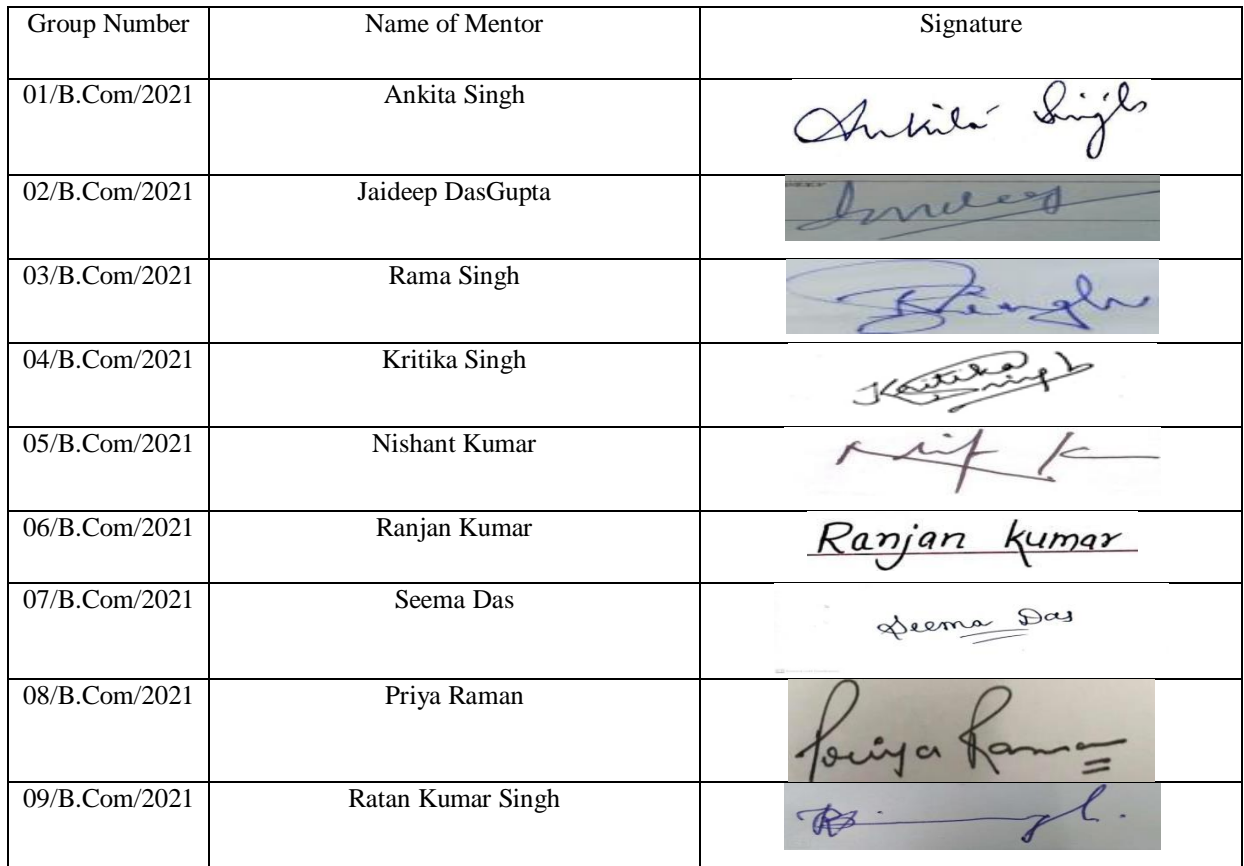 Group Number Name of Mentor Signature
01/B.Com/2021 Ankita Singh Ankita Singh
02/B.Com/2021 Jaideep DasGupta
03/B.Com/2021 Rama Singh RSingh
04/B.Com/2021 Kritika Singh Kritika Singh
05/B.Com/2021 Nishant Kumar
06/B.Com/2021 Ranjan Kumar Ranjan Kumar
07/B.Com/2021 Seema Das Seema Das
08/B.Com/2021 Priya Raman Priya Raman
09/B.Com/2021 Ratan Kumar Singh